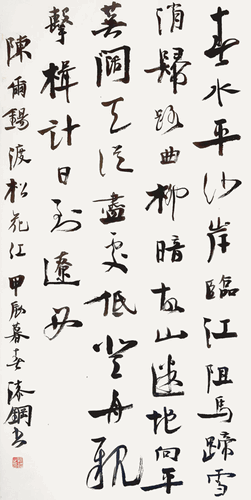 春水平沙岸臨江阻馬蹄雪
消歸路曲柳暗故山迷地向平
蕪闊天從盡處低登舟親
擊楫計日到遼西
陳爾錫渡松花江甲辰暮春漆鋼書